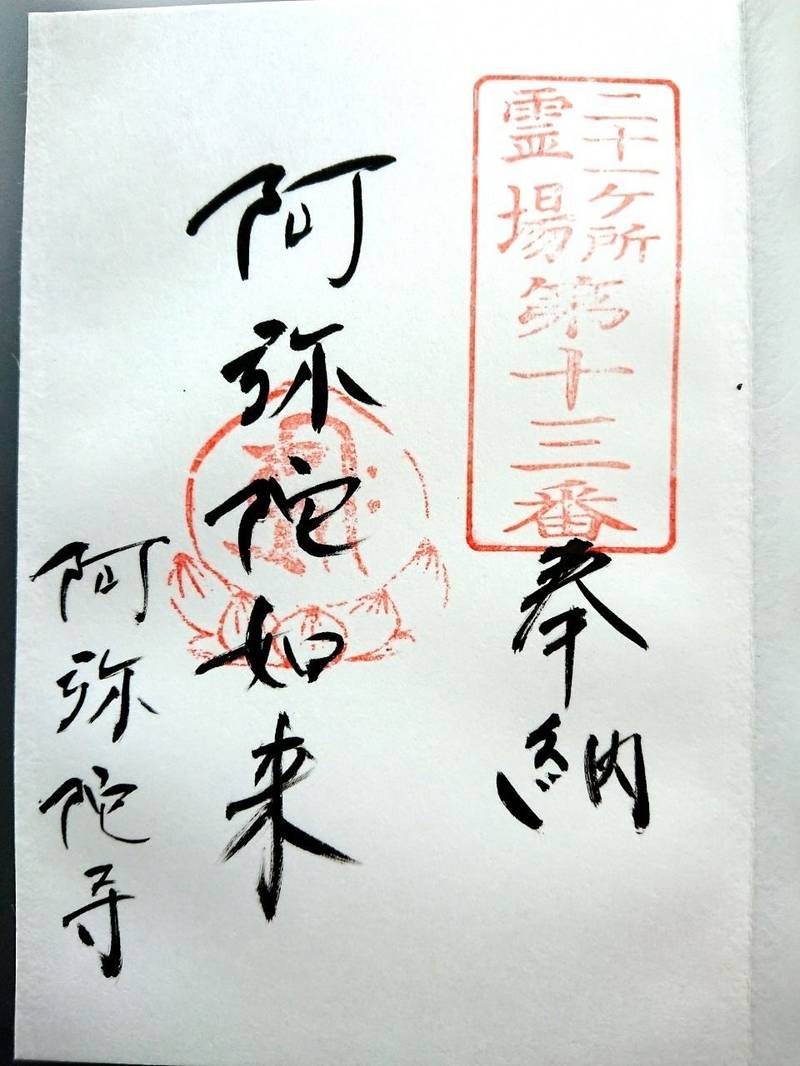 二十一ヶ所
霊場
第十三番
奉納
阿弥陀如来
阿弥陀寺